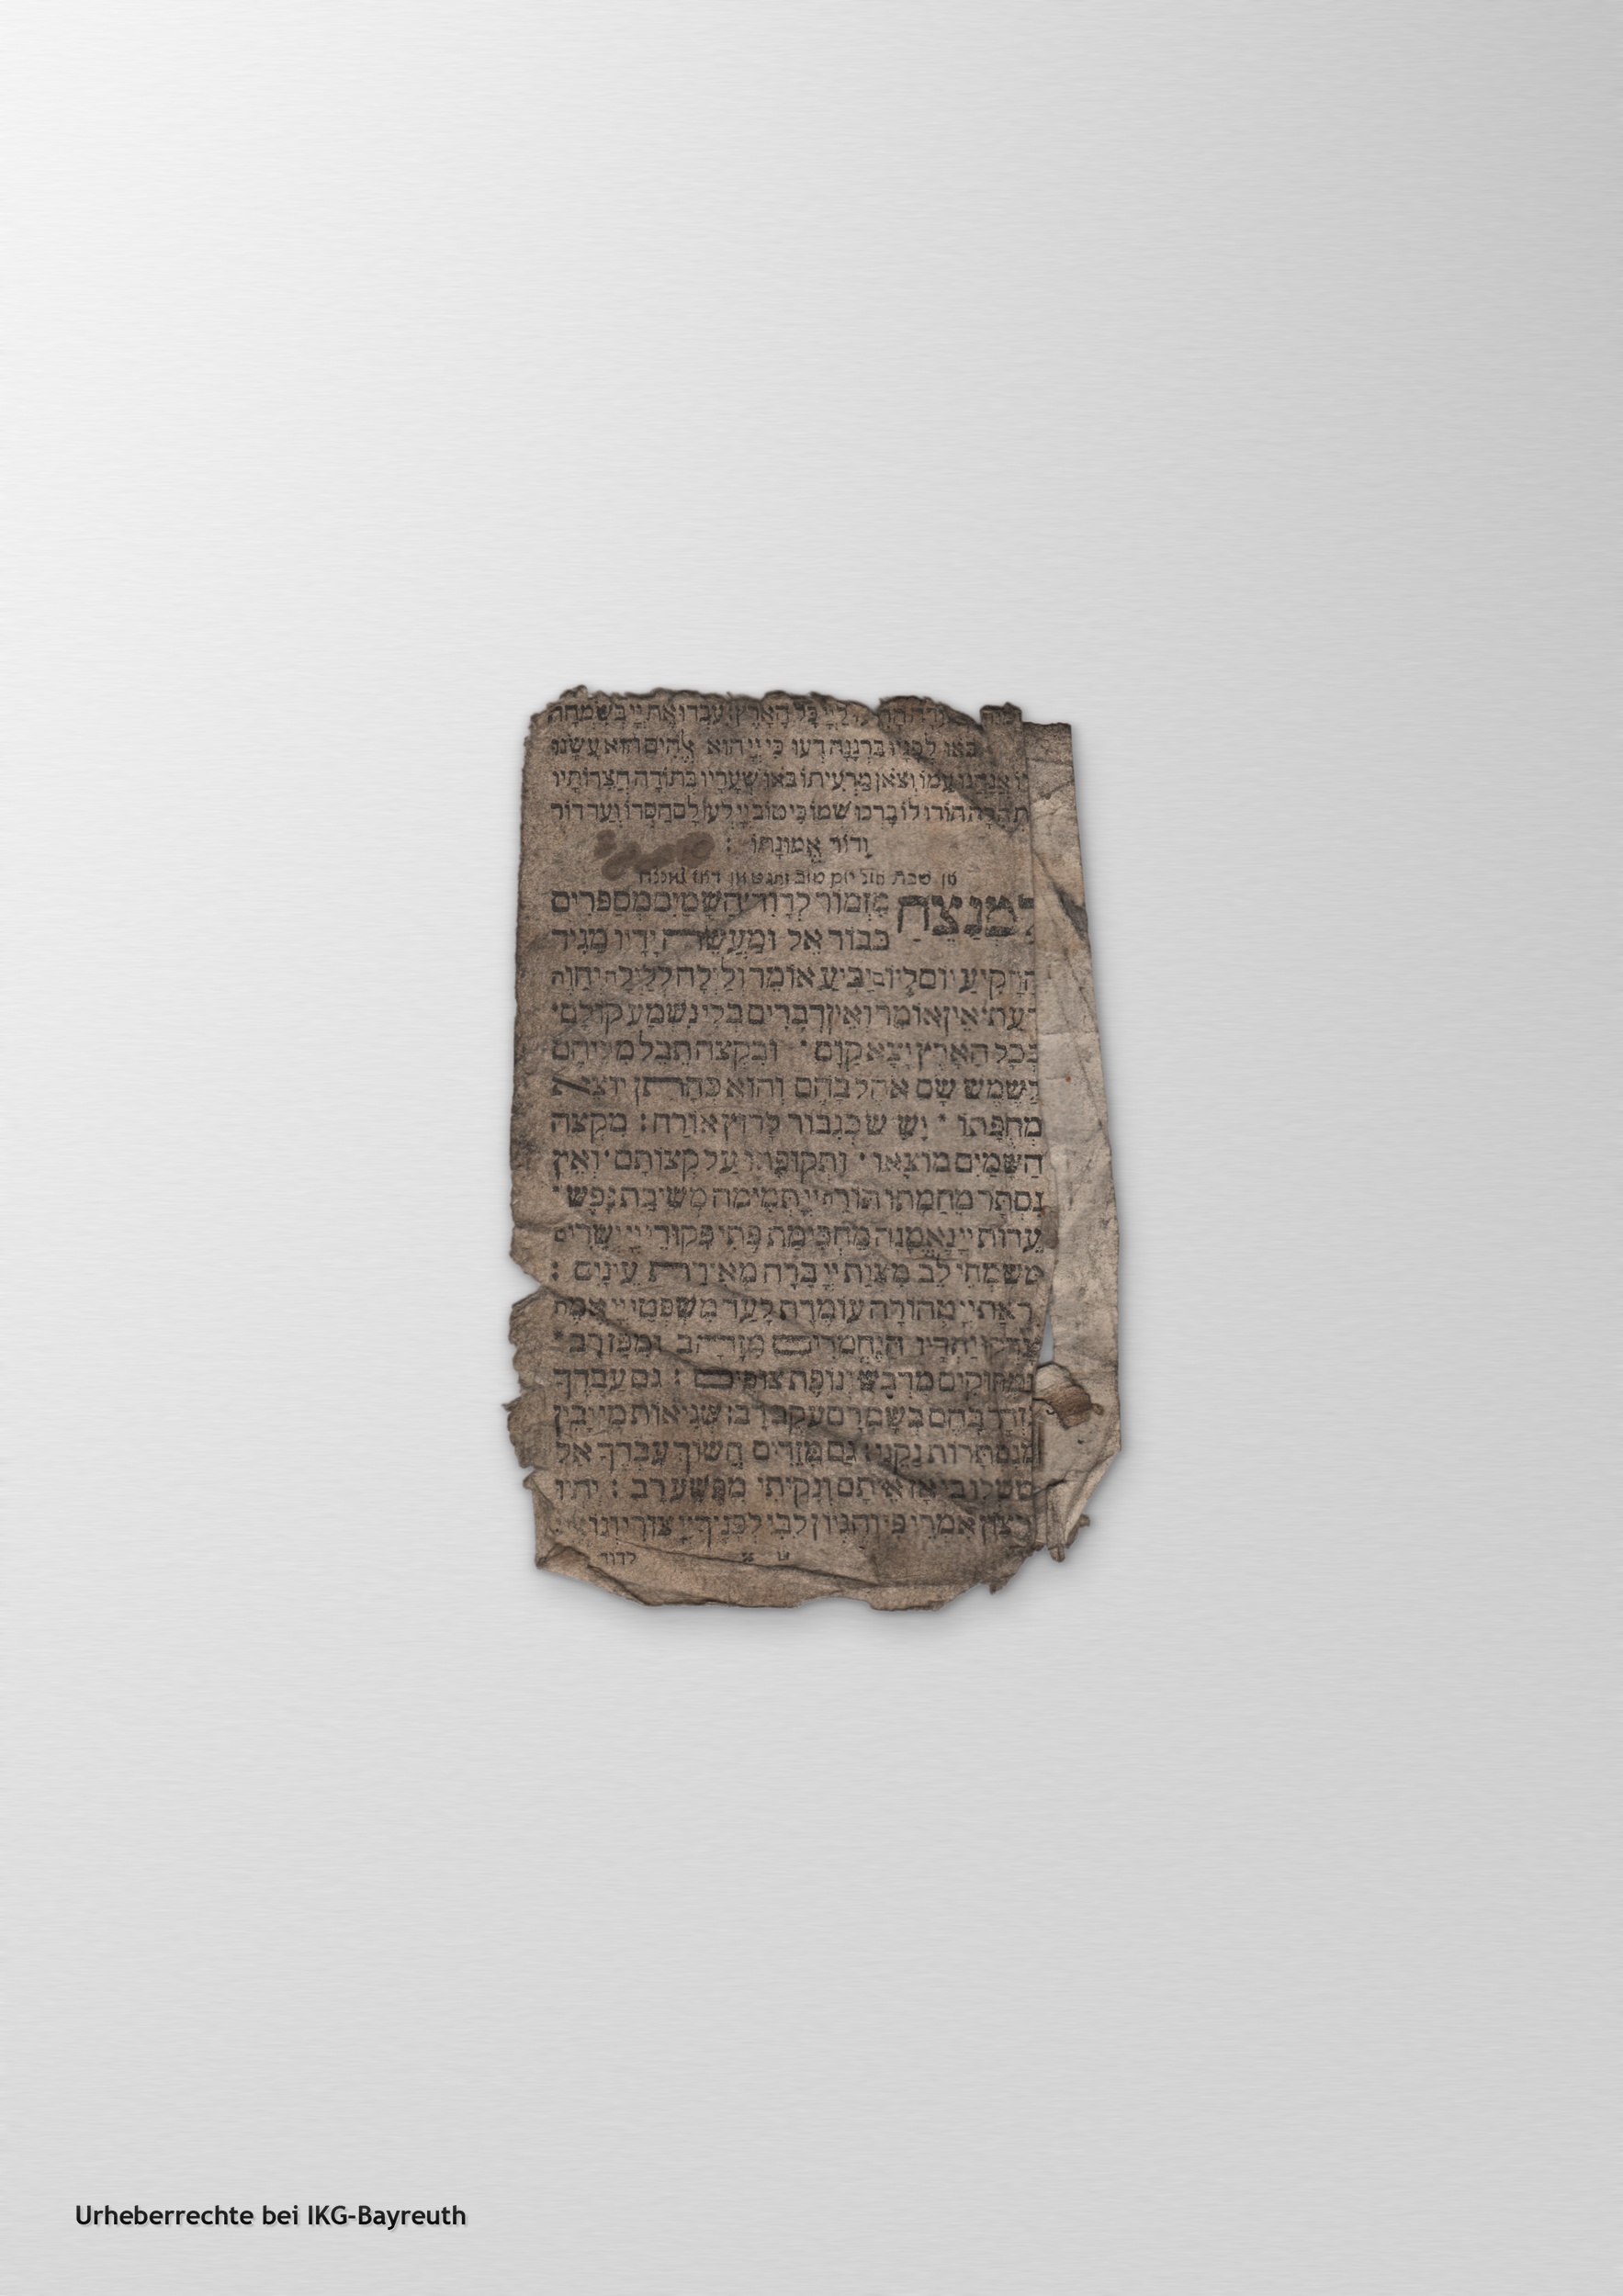 כל הארץ עבדו את יי בשמחה
באו לפניו ברננה דעו כי יי הוא אלהים הוא עשנו
אנחנו עמו וצאן מרעיתו באו שעריו בתודה חצרותיו
בתהלה הודו לו ברכו שמו כי טוב יי לעולם חסדו ועד דור
ודור אמונתו :
שבת יום טוב
למנצח מזמור לדוד השמים מספרים
כבוד אל ומעשה ידיו מגיד
הרקיע יום ליום יביע אומר ולילה ללילה יחוה
דעת אין אומר ואין דברים בלי נשמע קולם
בכל הארץ יצא קום ובקצה תבל מליהם
לשמש שם אהל בהם והוא כחתן יוצא
מחפתו יש שכגבור לרוץ אורח : מקצה
השמים מוצאו ותקופתו על קצותם ואין
נסתר מחמתו תורת יי תמימה משיבת נפש
עדות יי נאמנה מחכימת פתי פקודי יי ישרים
משמחי לב מצות יי ברה מאירת עינים :
יראת יי טהורה עומדת לעד משפטי יי אמת
צדקו יחדיו הנחמדים מזהב ומפז רב
ומתוקים מדבש ונופת צופים : גם עבדך
נזהר בהם בשמרם עקב רב : שגיאות מי יבין
מנסתרות נקני גם מזדים חשוך עבדך אל
ימשלו בי אז איתם ונקיתי מפשע רב : יהיו
לרצון אמרי פי והגיון לבי לפניך יי צורי וגואלי
לדוד
Urheberrechte bei IKG-Bayreuth